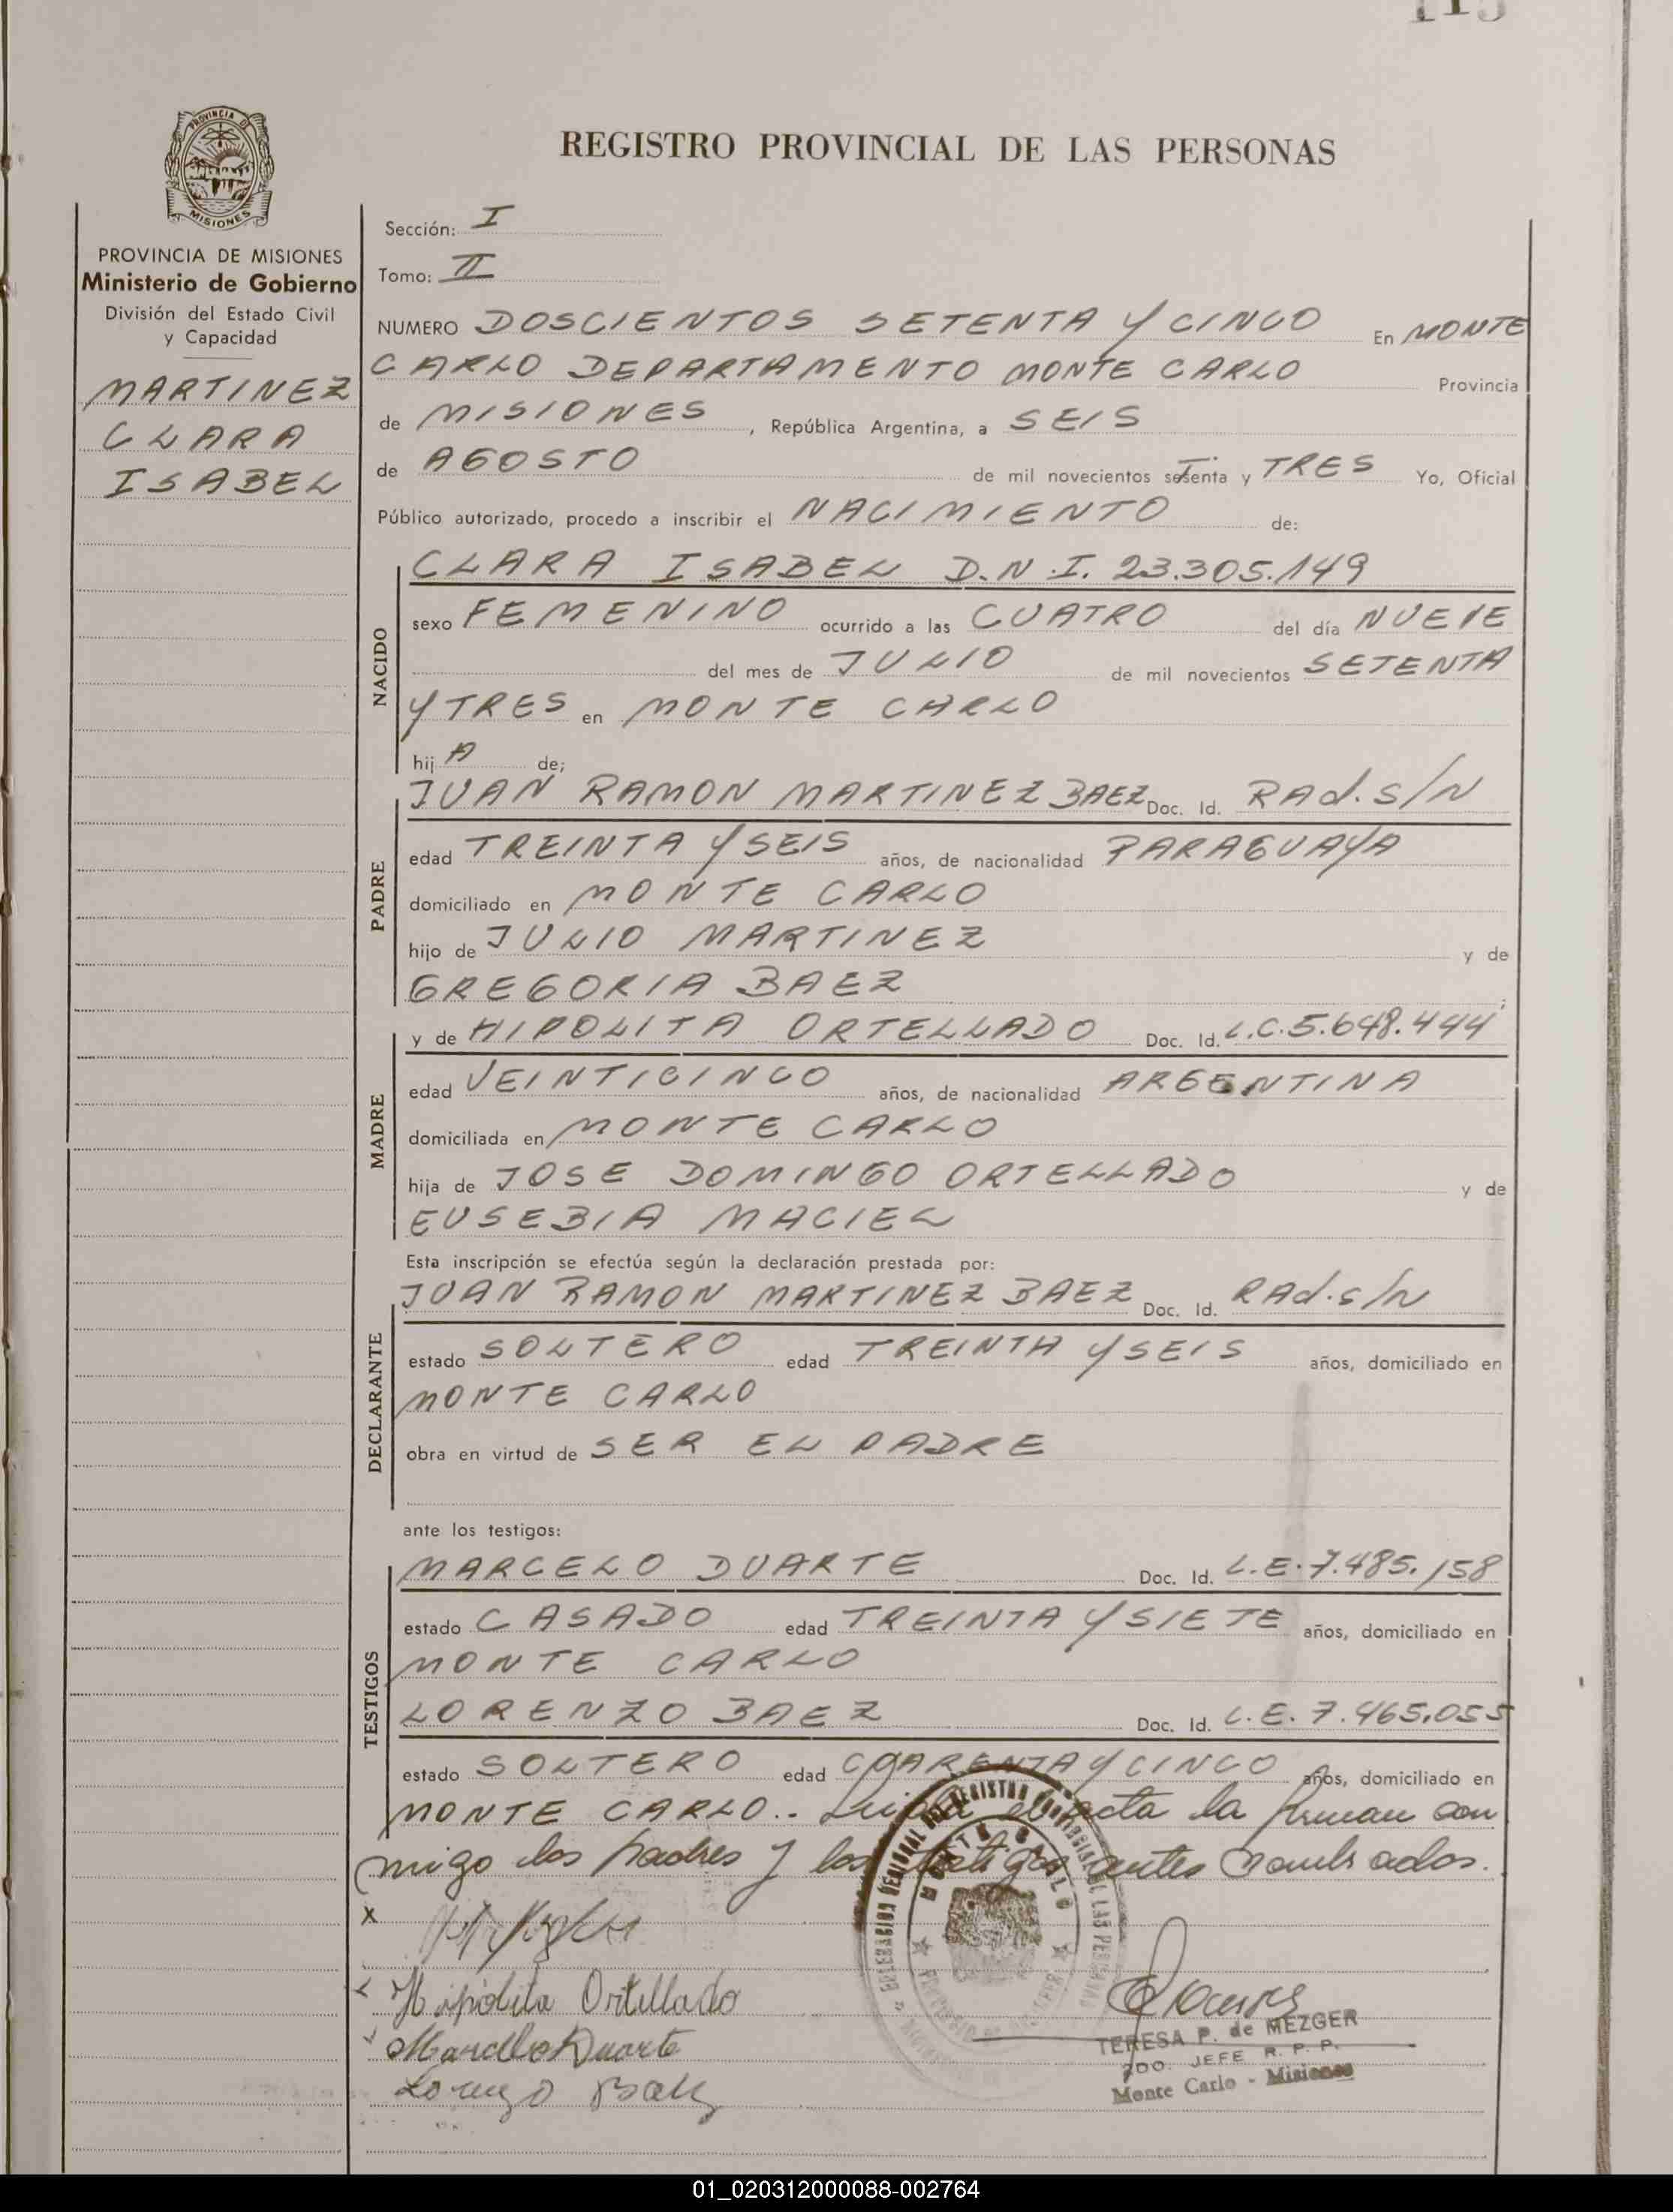 REGISTRO PROVINCIAL DE LAS PERSONAS
PROVINCIA DE
MISIONES
PROVINCIA DE MISIONES
Ministerio de Gobierno
División del Estado Civil
y Capacidad
MARTINEZ
CLARA
ISABEL
Sección: I
Tomo: II
NUMERO DOSCIENTOS SETENTA Y CINCO En MONTE
CARLO DEPARTAMENTO MONTE CARLO Provincia
de MISIONES, República Argentina, a SEIS
de AGOSTO de mil novecientos setenta y TRES Yo, Oficial
Público autorizado, procedo a inscribir el NACIMIENTO de:
NACIDO
CLARA ISABEL D.N.I. 23.305.149
sexo FEMENINO ocurrido a las CUATRO del día NUEVE
del mes de JULIO de mil novecientos SETENTA
Y TRES en MONTE CARLO
hij A de;
PADRE
JUAN RAMON MARTINEZ BAEZ Doc. Id. RAd. S/N
edad TREINTA Y SEIS años, de nacionalidad PARAGUAYA
domiciliado en MONTE CARLO
hijo de JULIO MARTINEZ y de
GREGORIA BAEZ;
MADRE
y de HIPOLITA ORTELLADO Doc. Id. L.C. 5.648.444
edad VEINTICINCO años, de nacionalidad ARGENTINA
domiciliada en MONTE CARLO
hija de JOSE DOMINGO ORTELLADO y de
EUSEBIA MACIEL
Esta inscripción se efectúa según la declaración prestada por:
DECLARANTE
JUAN RAMON MARTINEZ BAEZ Doc. Id. RAd. S/N
estado SOLTERO edad TREINTA Y SEIS años, domiciliado en
MONTE CARLO
obra en virtud de SER EL PADRE
ante los testigos:
TESTIGOS
MARCELO DUARTE Doc. Id. L.E. 7.485.158
estado CASADO edad TREINTA Y SIETE años, domiciliado en
MONTE CARLO
LORENZO BAEZ Doc. Id. L.E. 7.465.055
estado SOLTERO edad CUARENTA Y CINCO años, domiciliado en
MONTE CARLO.- Leida el acta la firman con
migo los padres y los testigos antes nombrados.
x
Hipólita Ortellado
Marcelo Duarte
Lorenzo Baez
MONTE CARLO
TERESA P. de MEZGER
2DO. JEFE R. P. P.
Monte Carlo - Misiones
01_020312000088-002764